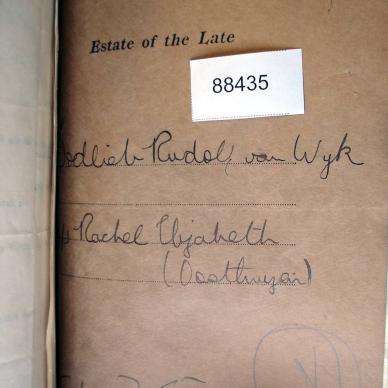 Estate of the Late
88435
Godlieb Rudolf van Wyk
Rachel Elizabeth
(Oosthuyzen)